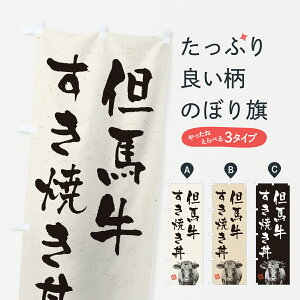 但馬牛
すき焼き丼
たっぷり
良い柄
のぼり旗
やったね
えらべる
3タイプ
A
B
C
但馬牛
すき焼き丼
但馬牛
すき焼き丼
但馬牛
すき焼き丼